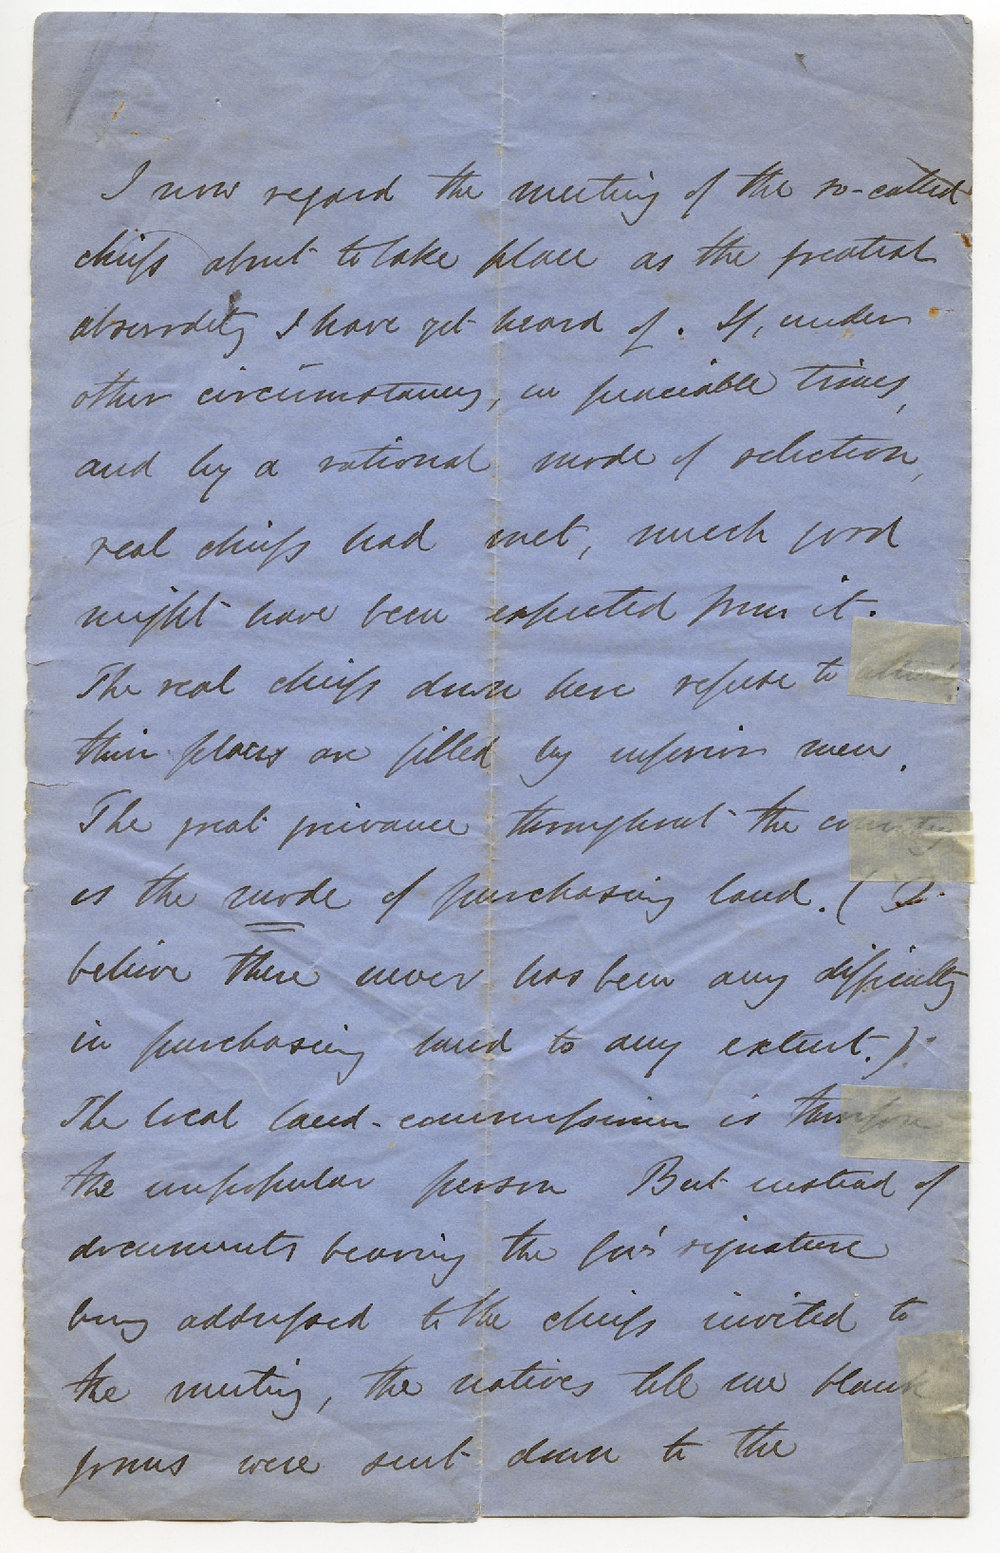 I now regard the meeting of the so-called
chiefs about to take place as the greatest
absurdity I have yet heard of. If, under
other circumstances, in peaceable times,
and by a rational mode of selection,
real chiefs had met, much good
might have been expected from it.
The real chiefs down here refuse to
their places are filled by inferior men.
The great grievance throughout the country
is the mode of purchasing land. (I
believe there never has been any difficulty
in purchasing land to any extent.)
The local land-commissioner is therefore
the unpopular person But instead of
documents bearing the Gov's signature
being addressed to the chiefs invited to
the meeting, the natives tell me blank
forms were sent down to the